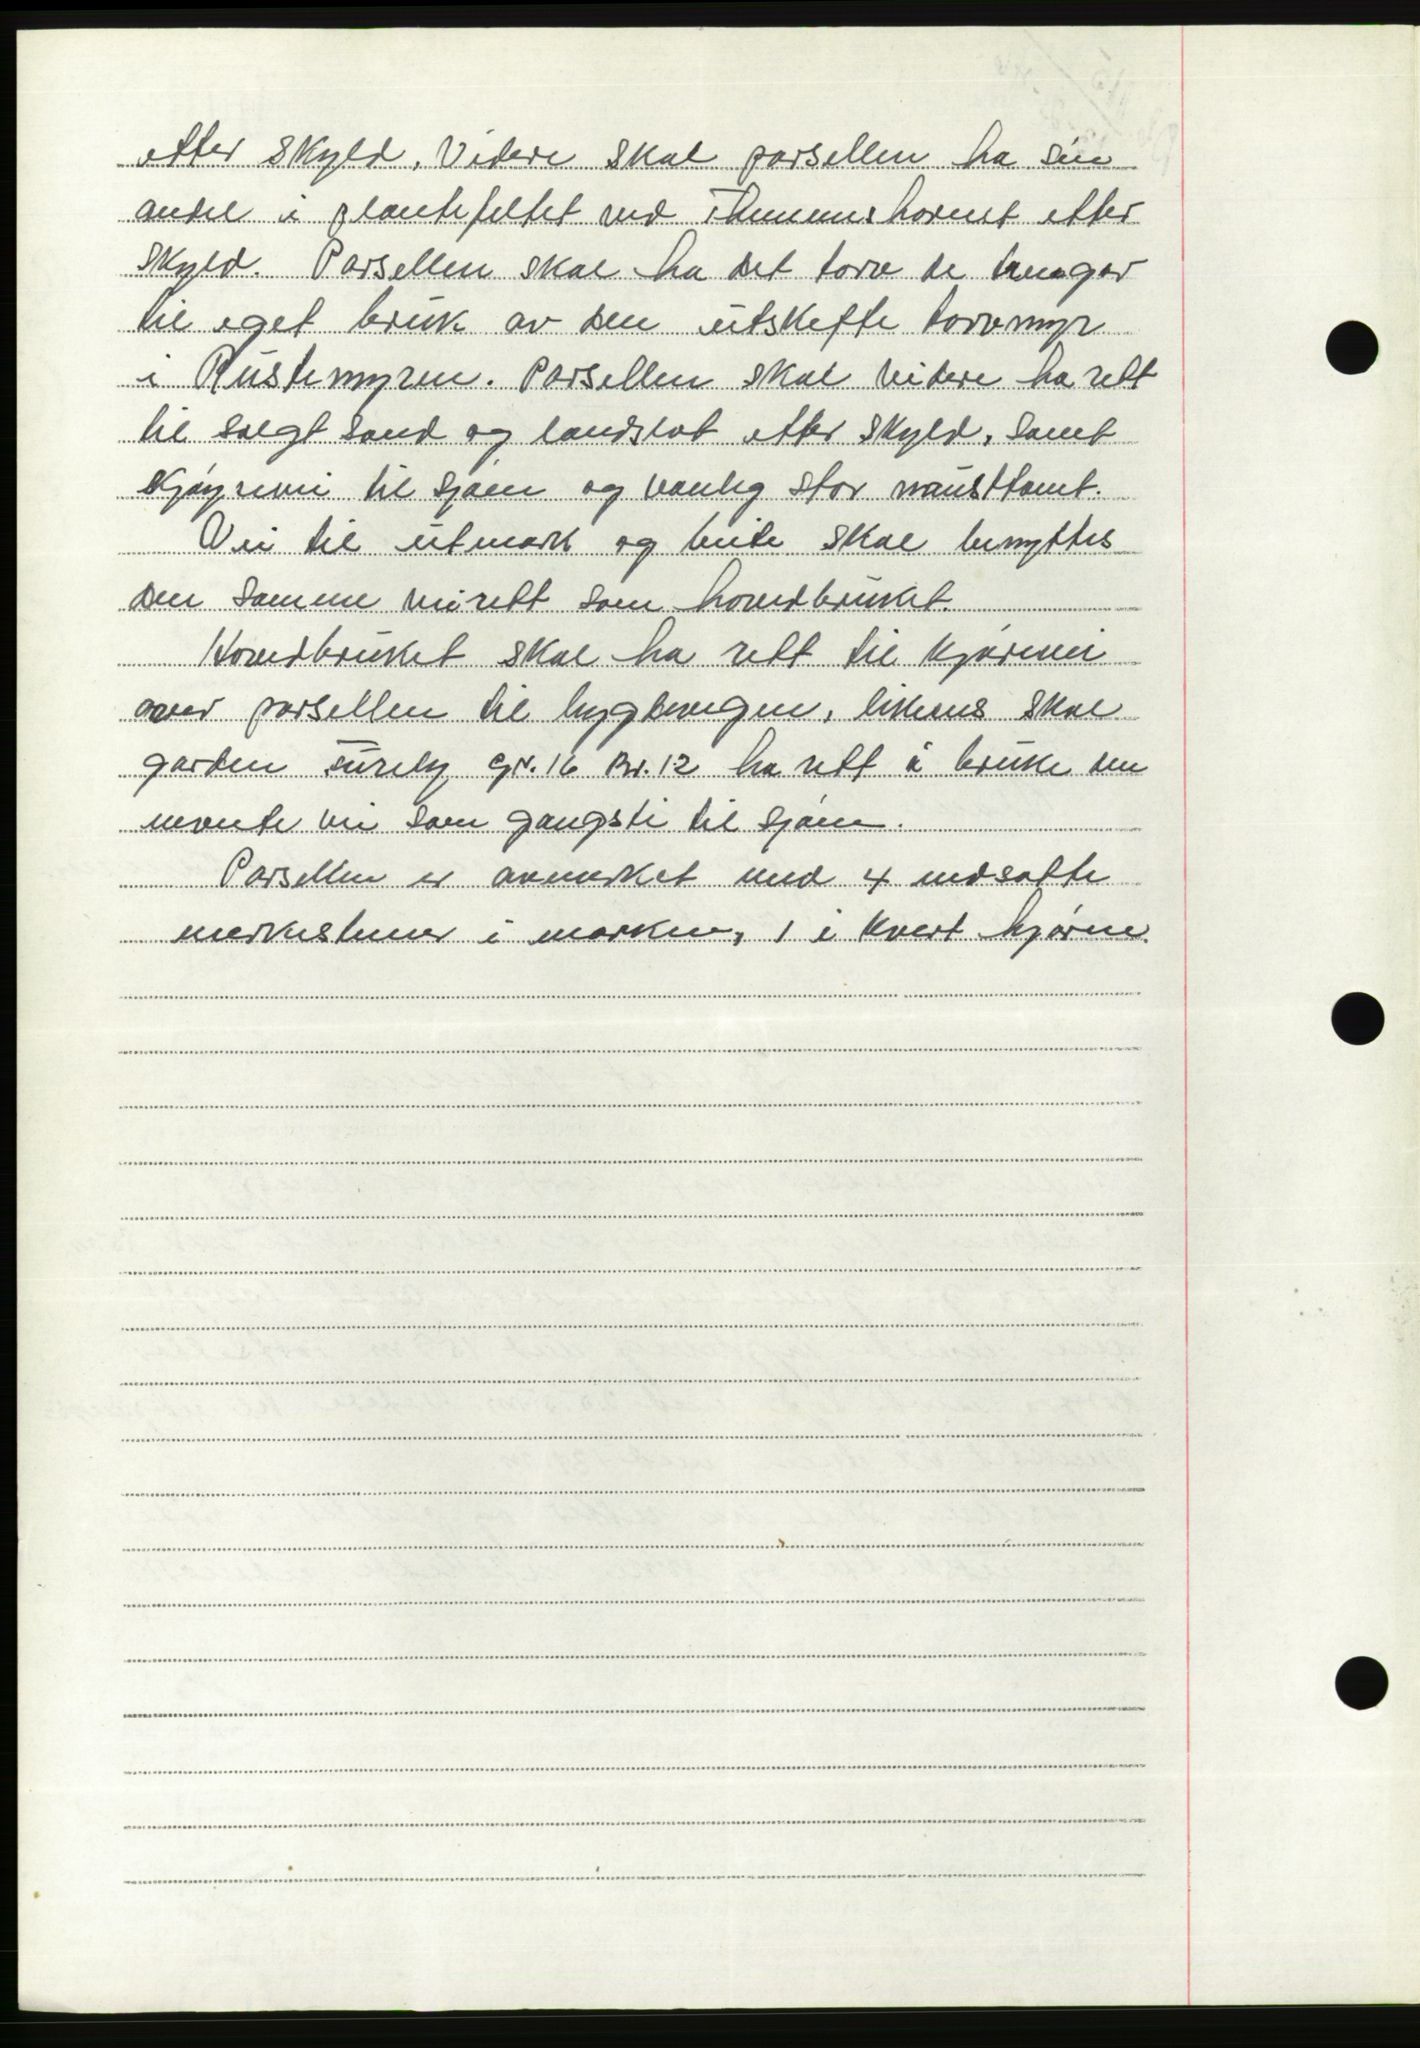 etter skyld. Videre skal parsellen ha sin
andel i plantefeltet ved etter
skyld. Parsellen skal ha det torv de trenger
til eget bruk av den utskifte torvmyr
i Rustemyren. Parsellen skal videre ha rett
til solgt sand og landslot etter skyld, samt
kjøyrevei til sjøen og vanlig stor nausttomt.
Vei til utmark og beite skal benyttes
den samme veirett som hovedbruket.
Hovedbruket skal ha rett til kjørevei
over parsellen til bygdevegen, likeens skal
garden gr. 16 Br. 12 ha rett å bruke den
nevnte vei som gangsti til sjøen.
Parsellen er avmerket med 4 nedsatte
merkestener i marken, 1 i kvert hjørne.